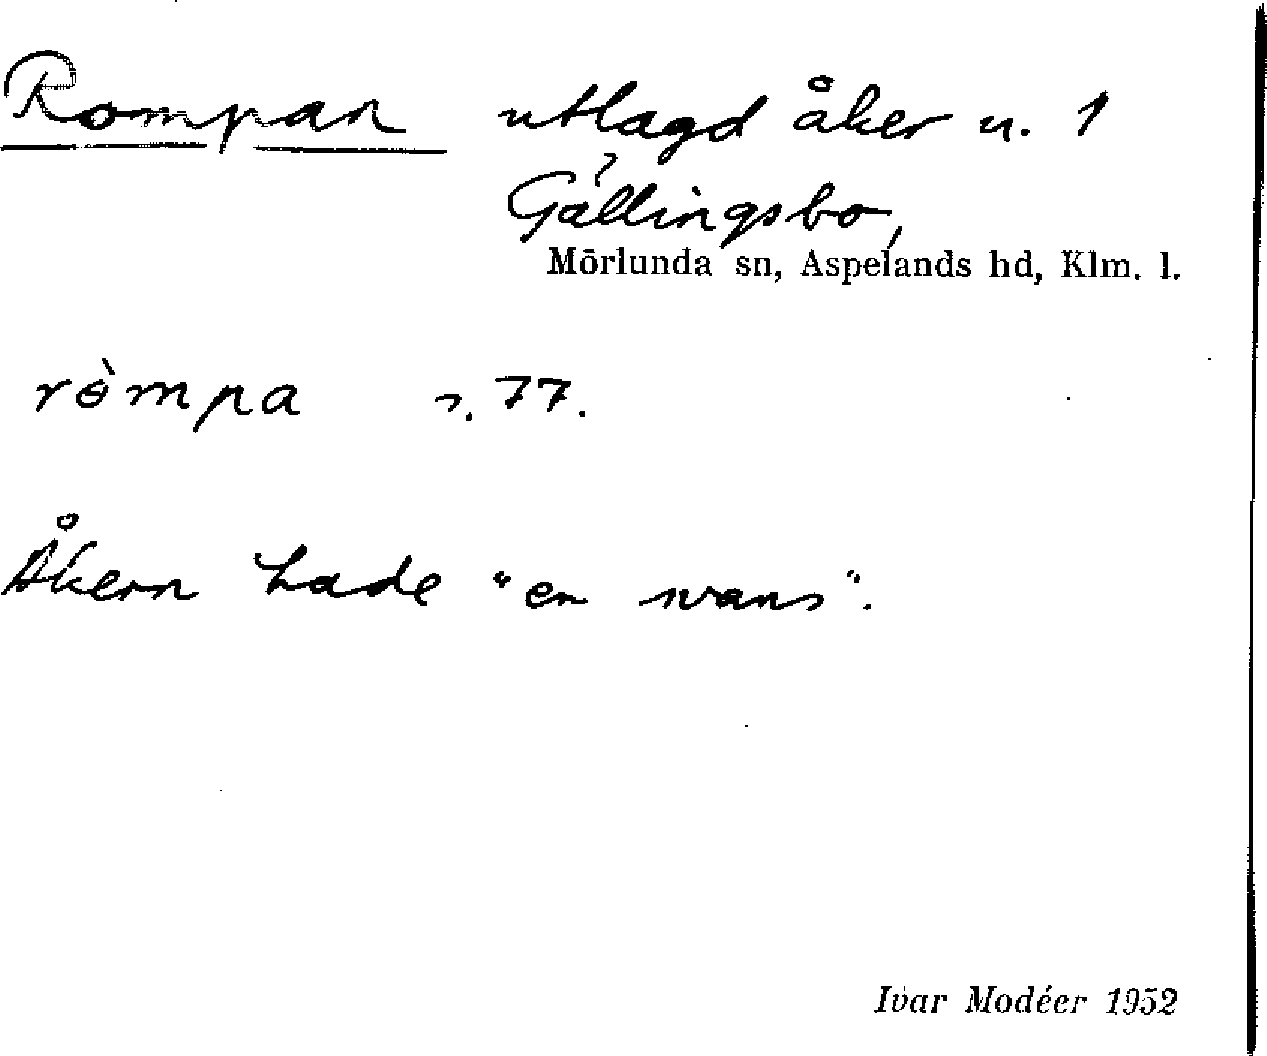 Rompan utlagd åker u. 1
Gållingsbo,
Mörlunda sn, Aspelands hd, Klm. l.
rɵ̀mpa s. 77.
Åkern hade "en svans".
Ivar Modéer 1952